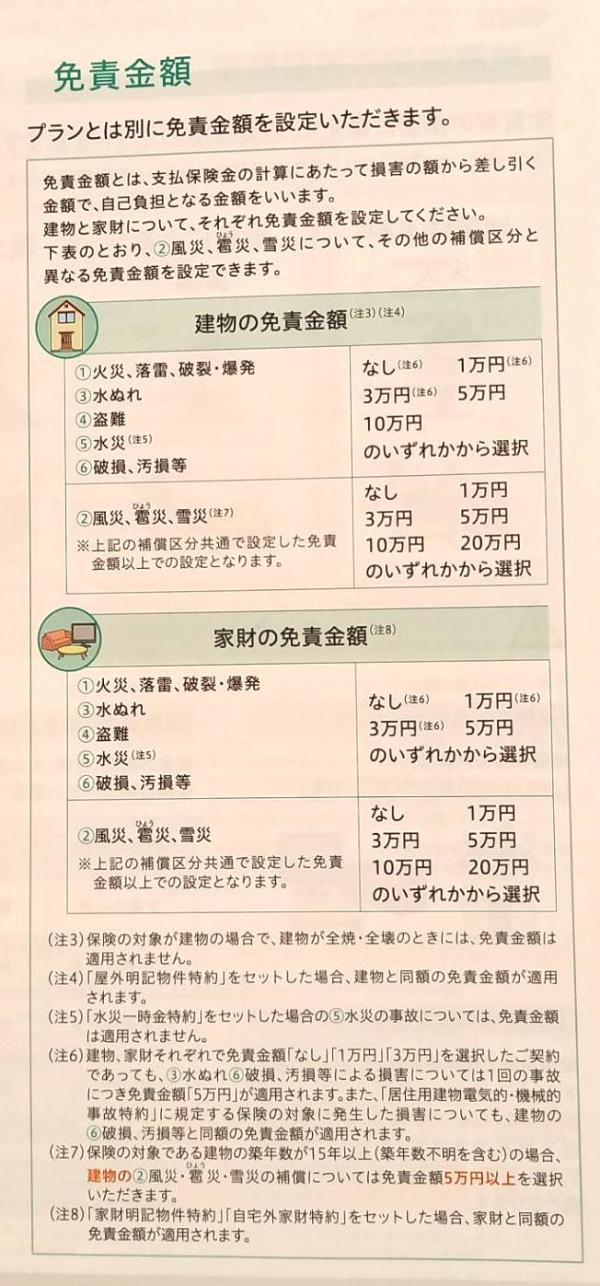 免責金額
プランとは別に免責金額を設定いただきます。
免責金額とは、支払保険金の計算にあたって損害の額から差し引く
金額で、自己負担となる金額をいいます。
建物と家財について、それぞれ免責金額を設定してください。
下表のとおり、②風災、雹災、雪災について、その他の補償区分と
ひょう
異なる免責金額を設定できます。
建物の免責金額(注3)(注4)
①火災、落雷、破裂・爆発
③水ぬれ
④盗難
⑤水災(注5)
⑥破損、汚損等
なし(注6) 1万円(注6)
3万円(注6) 5万円
10万円
のいずれかから選択
②風災、雹災、雪災(注7)
ひょう
※上記の補償区分共通で設定した免責
金額以上での設定となります。
なし 1万円
3万円 5万円
10万円 20万円
のいずれかから選択
家財の免責金額(注8)
①火災、落雷、破裂・爆発
③水ぬれ
④盗難
⑤水災(注5)
⑥破損、汚損等
なし(注6) 1万円(注6)
3万円(注6) 5万円
のいずれかから選択
②風災、雹災、雪災
ひょう
※上記の補償区分共通で設定した免責
金額以上での設定となります。
なし 1万円
3万円 5万円
10万円 20万円
のいずれかから選択
(注3)保険の対象が建物の場合で、建物が全焼・全壊のときには、免責金額は
適用されません。
(注4)「屋外明記物件特約」をセットした場合、建物と同額の免責金額が適用
されます。
(注5)「水災一時金特約」をセットした場合の⑤水災の事故については、免責金額
は適用されません。
(注6)建物、家財それぞれで免責金額「なし」「1万円」「3万円」を選択したご契約
であっても、③水ぬれ⑥破損、汚損等による損害については1回の事故
につき免責金額「5万円」が適用されます。また、「居住用建物電気的・機械的
事故特約」に規定する保険の対象に発生した損害についても、建物の
⑥破損、汚損等と同額の免責金額が適用されます。
(注7)保険の対象である建物の築年数が15年以上(築年数不明を含む)の場合、
建物の②風災・雹災・雪災の補償については免責金額5万円以上を選択
ひょう
いただきます。
(注8)「家財明記物件特約」「自宅外家財特約」をセットした場合、家財と同額の
免責金額が適用されます。